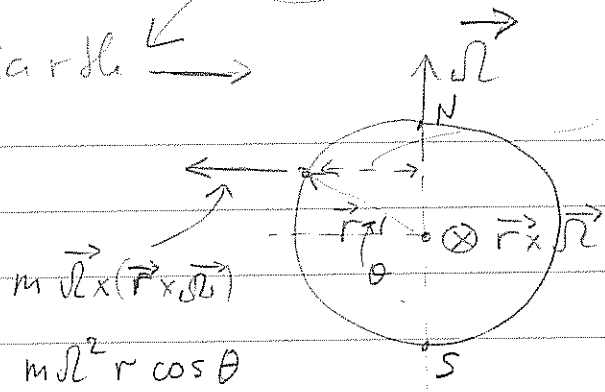 earth
Ω⃗
N
r⃗
⊗ r⃗ × Ω⃗
θ
m Ω⃗ × (r⃗ × Ω⃗)
m Ω² r cos θ
S